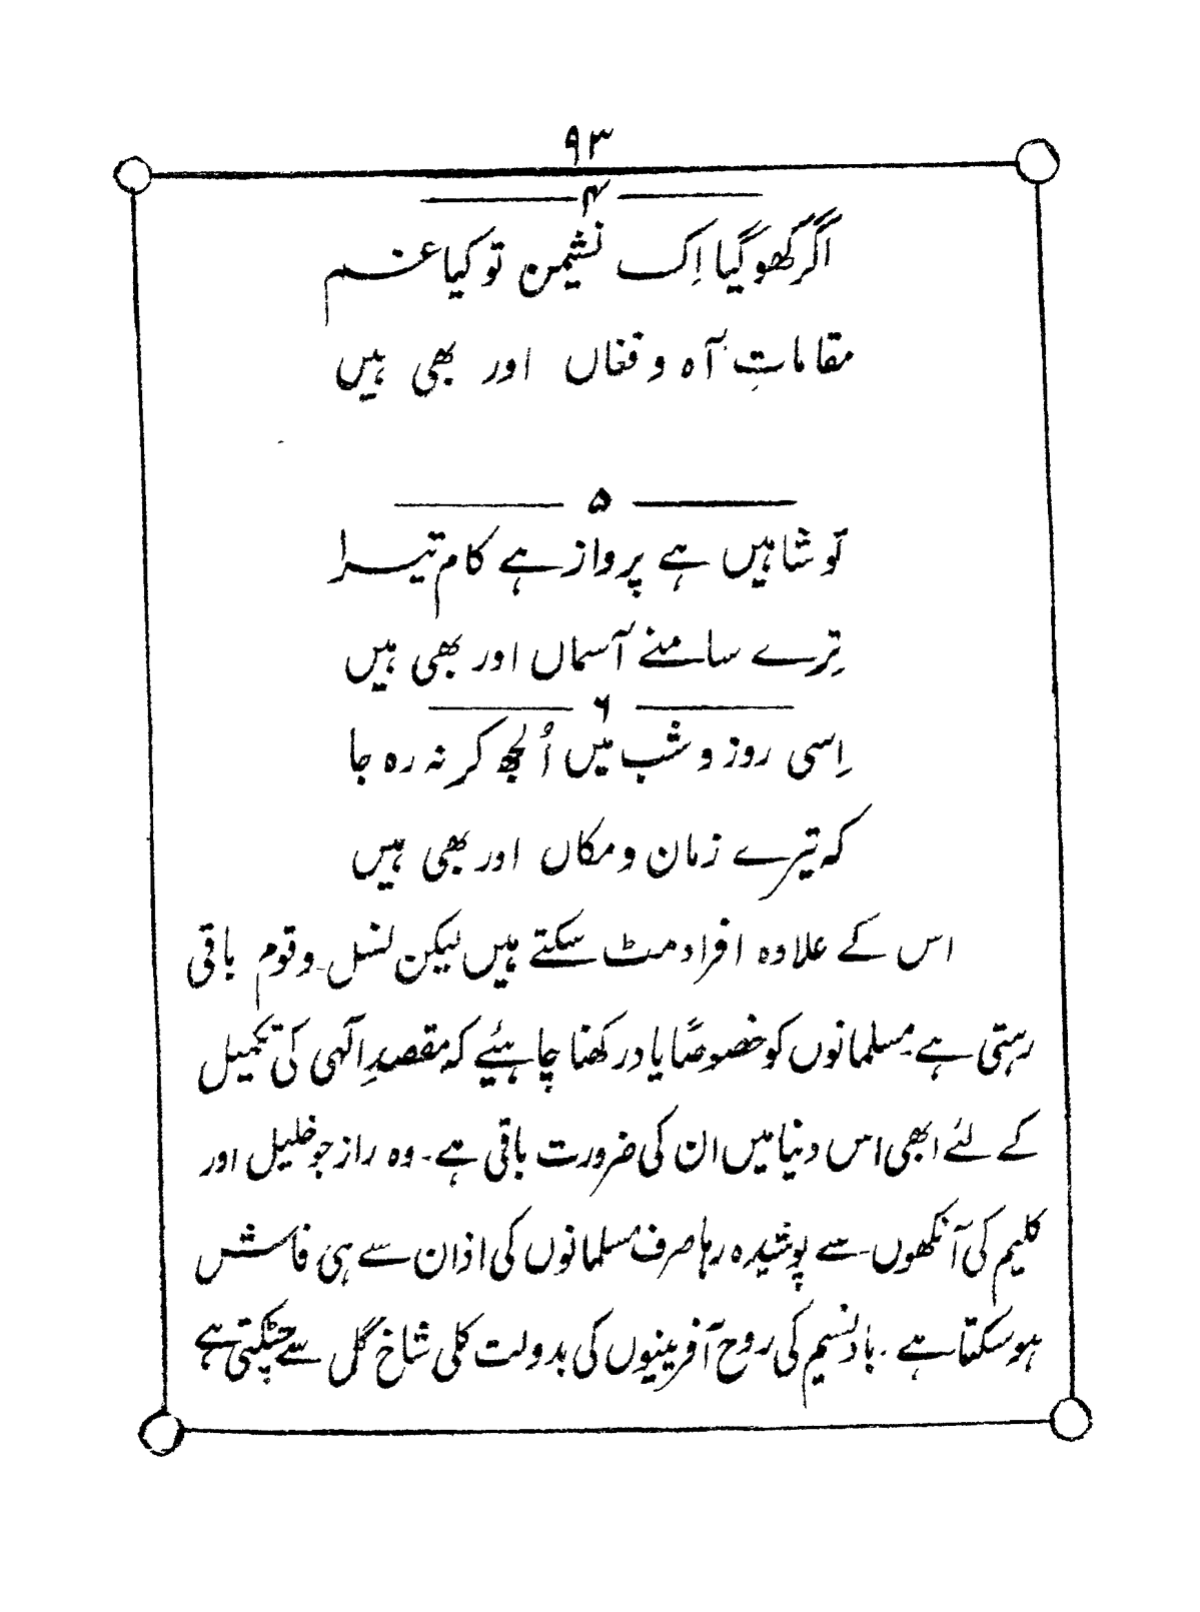 ۹۳
۴
اگر کھو گیا اِک نشیمن تو کیا غم
مقاماتِ آہ و فغاں اور بھی ہیں
۵
تو شاہیں ہے پرواز ہے کام تیرا
تِرے سامنے آسماں اور بھی ہیں
۶
اِسی روز و شب میں اُلجھ کر نہ رہ جا
کہ تیرے زمان و مکاں اور بھی ہیں
اس کے علاوہ افراد مٹ سکتے ہیں لیکن نسل و قوم باقی
رہتی ہے۔ مسلمانوں کو خصوصاً یاد رکھنا چاہئیے کہ مقصدِ الٰہی کی تکمیل
کے لئے ابھی اس دنیا میں ان کی ضرورت باقی ہے۔ وہ راز جو خلیل اور
کلیم کی آنکھوں سے پوشیدہ رہا صرف مسلمانوں کی اذان سے ہی فاش
ہو سکتا ہے۔ بادِ نسیم کی روح آفرینیوں کی بدولت کلی شاخ گل سے چٹکتی ہے